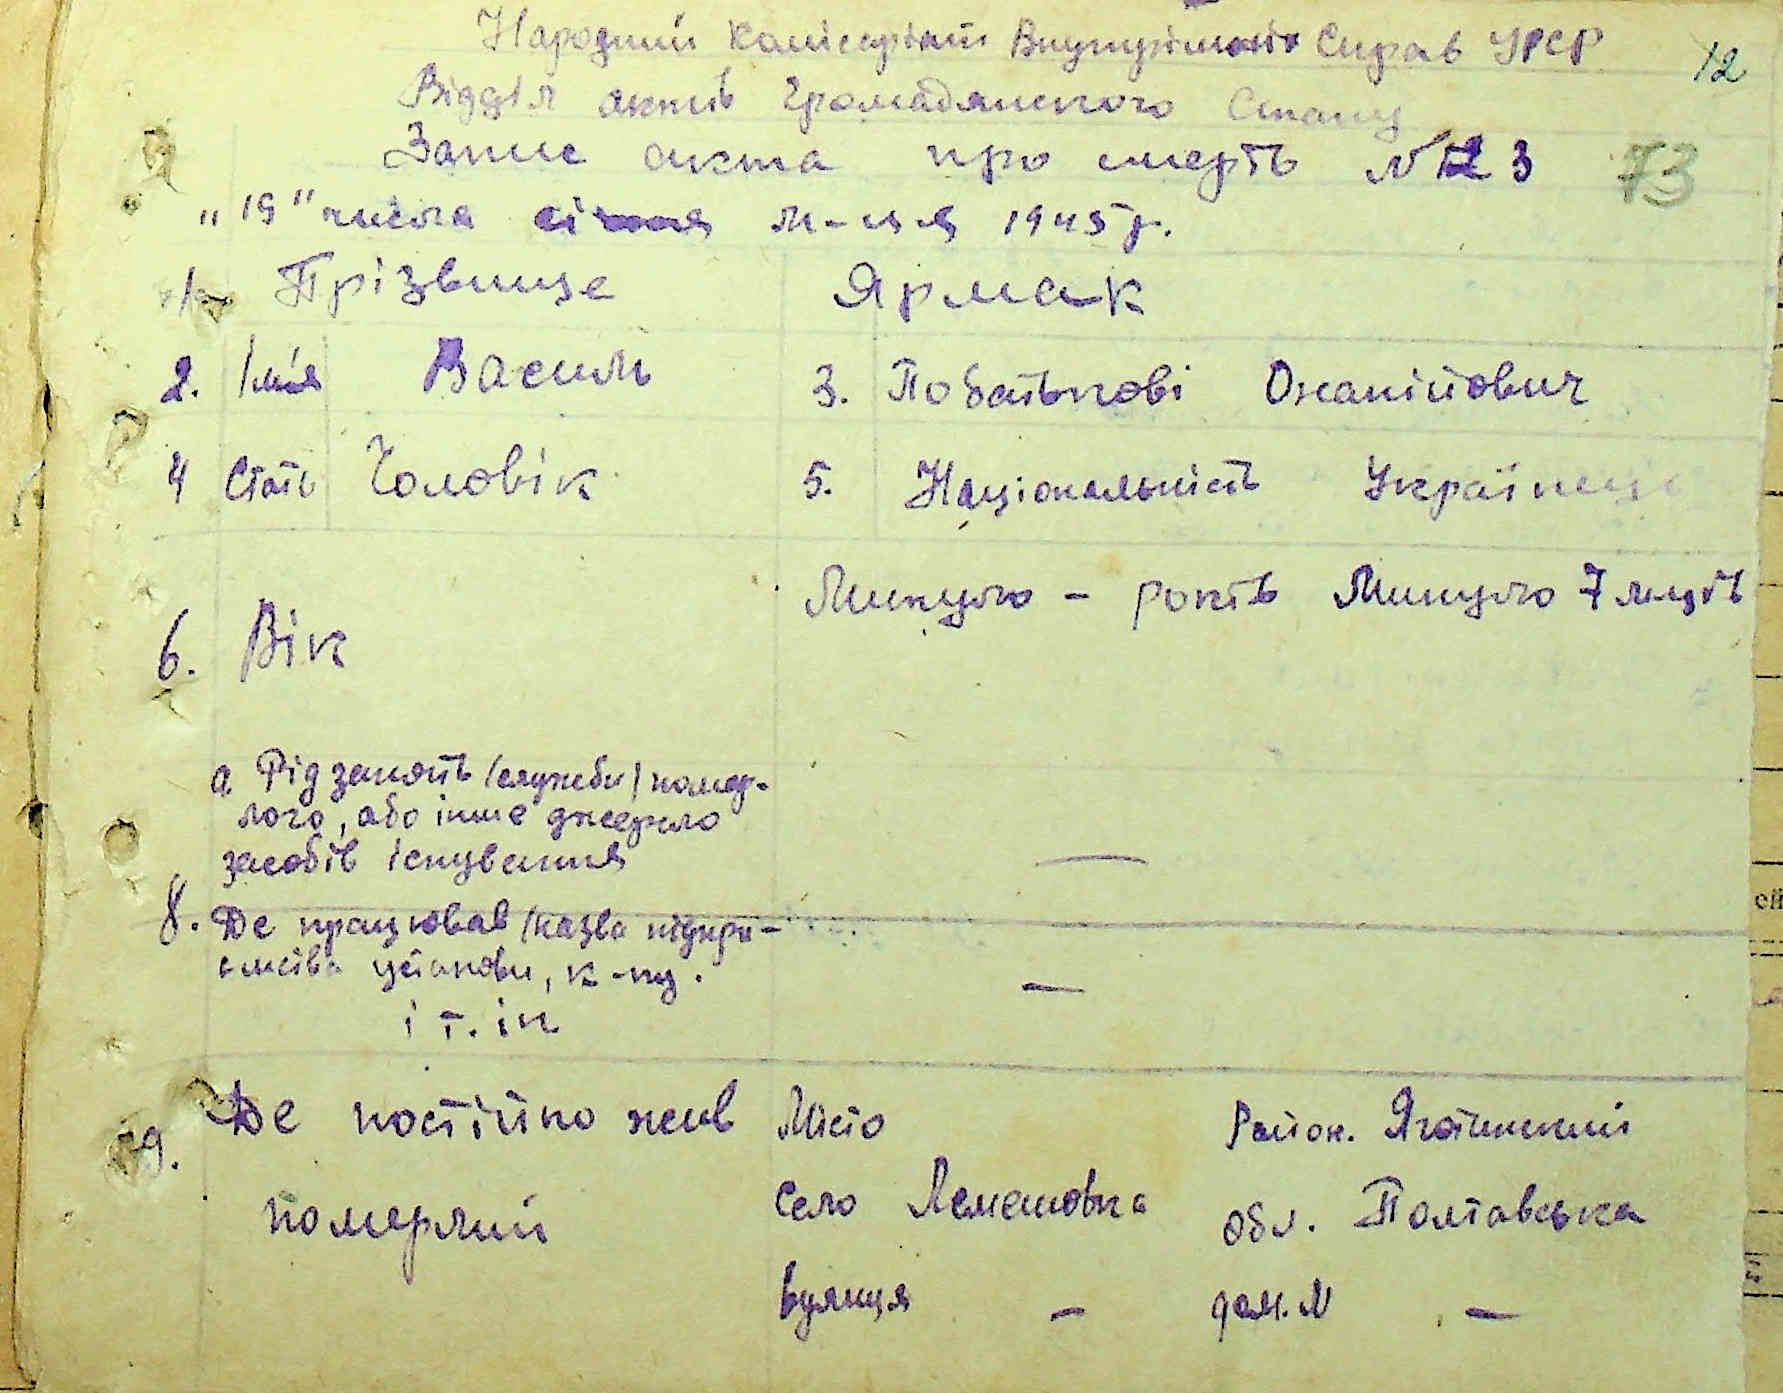 Народний Комісаріат Внутрішніх Справ УРСР
12
Відділ актів Громадянского Стану
Запис акта про смерть N 23
73
"19" числа січня м-ця 1945 р.
Прізвище Ярмак
2. Ім'я Василь 3. Побатькові Онанійович
4 Стать Чоловік 5. Національність Українец
Минуло - років Минуло 7 місяців
6. Вік
а Рід занять (служби) помер-
лого, або інше джерело
засобів існування —
8. Де працював (назва підпри-
ємства установи, к-пу.
і т. ін —
9. Де постійно жив Місто Район. Яготинский
померлий Село Лемешовка обл. Полтавська
вулиця — дом. N —